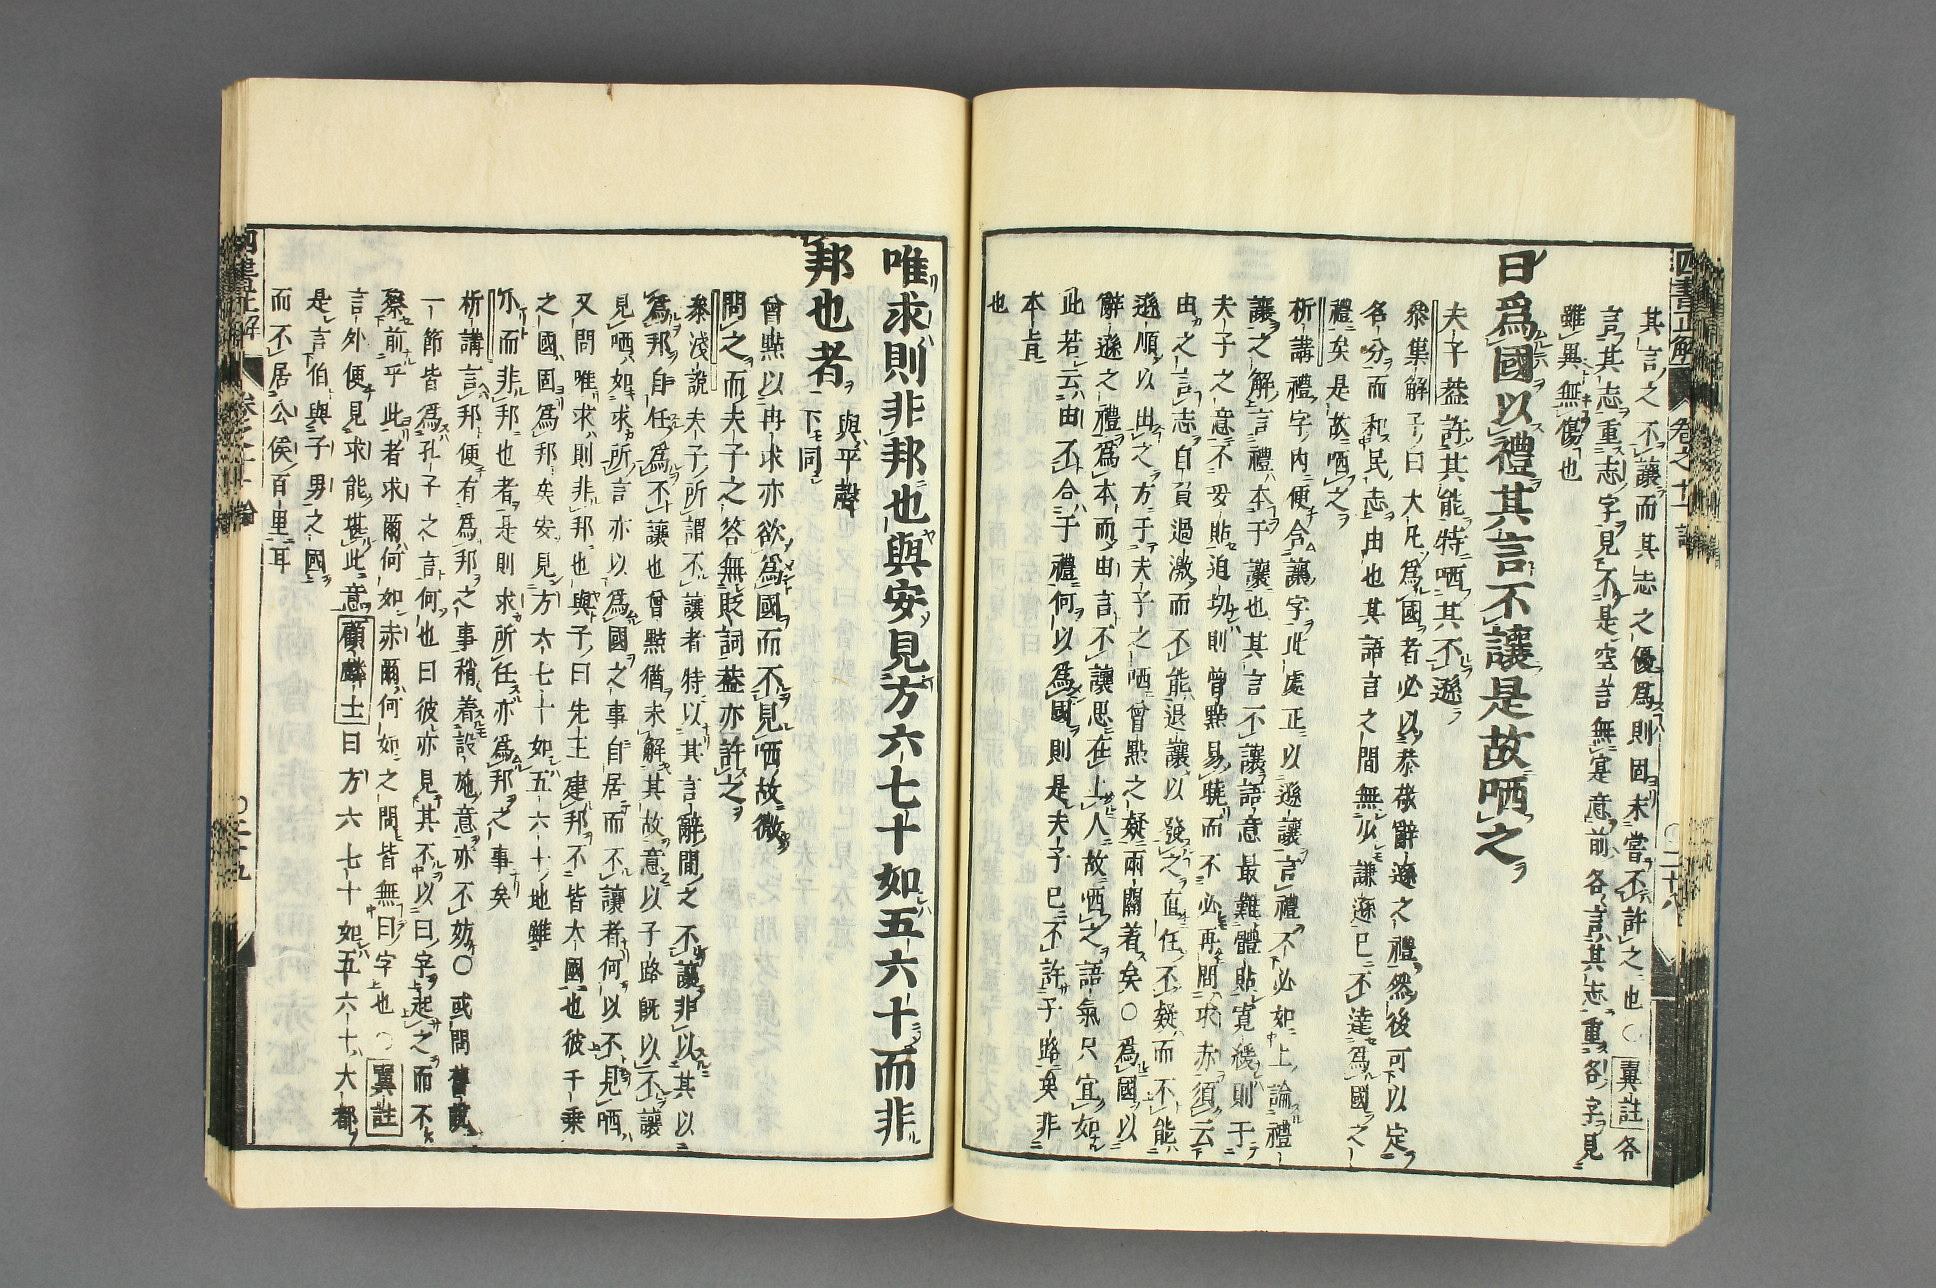 四書正解 卷之十一 論 〇二十八
其言之不讓而其志之優爲則固未嘗不許之也〇翼註各
言其志重志字見不是空言無寔意前各言其志重各字見
雖異無傷也
曰爲國以禮其言不讓是故哂之
夫子蓋許其能特哂其不遜
叅集解子曰大凡爲國者必以恭敬辭遜之禮然後可以定
名分而和民志由也其語言之間無少謙遜已不達爲國之
禮矣是故哂之
析講禮字內便含讓字此處正以遜讓言禮不必如上論禮
讓之解言禮本于讓也其言不讓語意最難體貼寬緩則于
夫子之意不妥貼迫切則曾點易曉而不必再問求赤須云
由之言志自負過激而不能退讓以發之直任不疑而不能
遜順以出之方于夫子之哂曾點之疑兩關着矣〇爲國以
辭遜之禮爲本而由言不讓思在上人故哂之語氣只宜如
此若云由不合于禮何以爲國則是夫子已不許子路矣非
本旨
也
唯求則非邦也與安見方六七十如五六十而非
邦也者 與平聲下同
曾點以冉求亦欲爲國而不見哂故微
問之而夫子之答無貶詞蓋亦許之
叅淺說夫子所謂不讓者特以其言辭間之不讓非以其以
爲邦自任爲不讓也曾點猶未解其故意以子路旣以不讓
見哂如求所言亦以爲國之事自居而不讓者何以不見哂
又問唯求則非邦也與子曰先王建邦不皆大國也彼千乘
之國固爲邦矣安見方六七十如五六十之地雖
小而非邦也者是則求所任亦爲邦之事矣
析講言邦便有爲邦之事稍着設施意亦不妨〇或問舊說
一節皆爲孔子之言何也曰彼亦見其不以曰字起之而不
察前乎此者求爾何如赤爾何如之問皆無曰字也〇翼註
言外便見求能堪此意顧麟士曰方六七十如五六十大都
是言伯與子男之國
而不居公侯百里耳